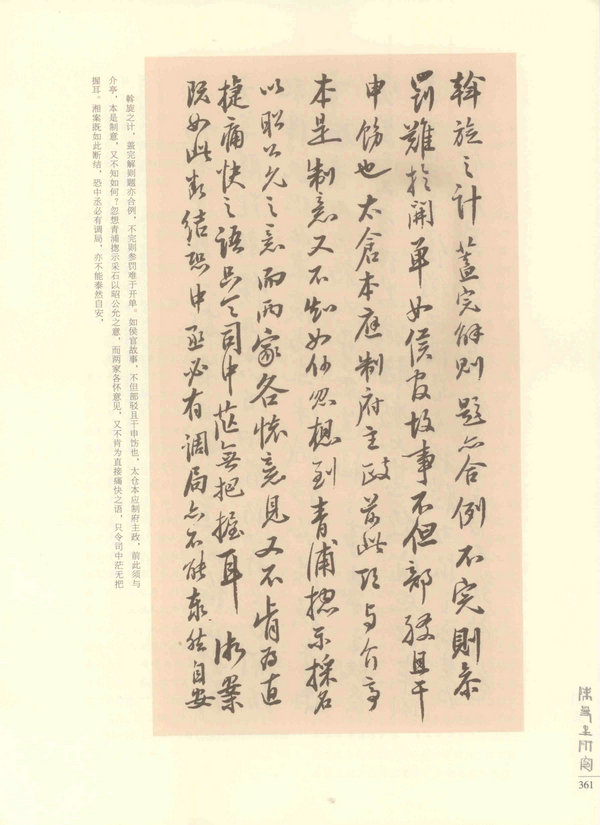 斡旋之计蓋完解则题亦合例不完则参
罰難於開單如侯官故事不但部驳且干
申饬也太倉本应制府主政前此须与介亭
本是制意又不知如何忽想到青浦揔示採石
以昭公允之意而两家各懷意見又不肯为直
捷痛快之语只令司中茫無把握耳湘案
既如此断结恐中丞必有调局亦不能泰然自安
斡旋之计，蓋完解则题亦合例，不完则参罚难于开单。如侯官故事，不但部驳且干申饬也，太仓本应制府主政，前此须与
介亭，本是制意，又不知如何？忽想青浦揔示采石以昭公允之意，而两家各怀意见，又不肯为直接痛快之语，只令司中茫无把
握耳。湘案既如此断结，恐中丞必有调局，亦不能泰然自安，
361